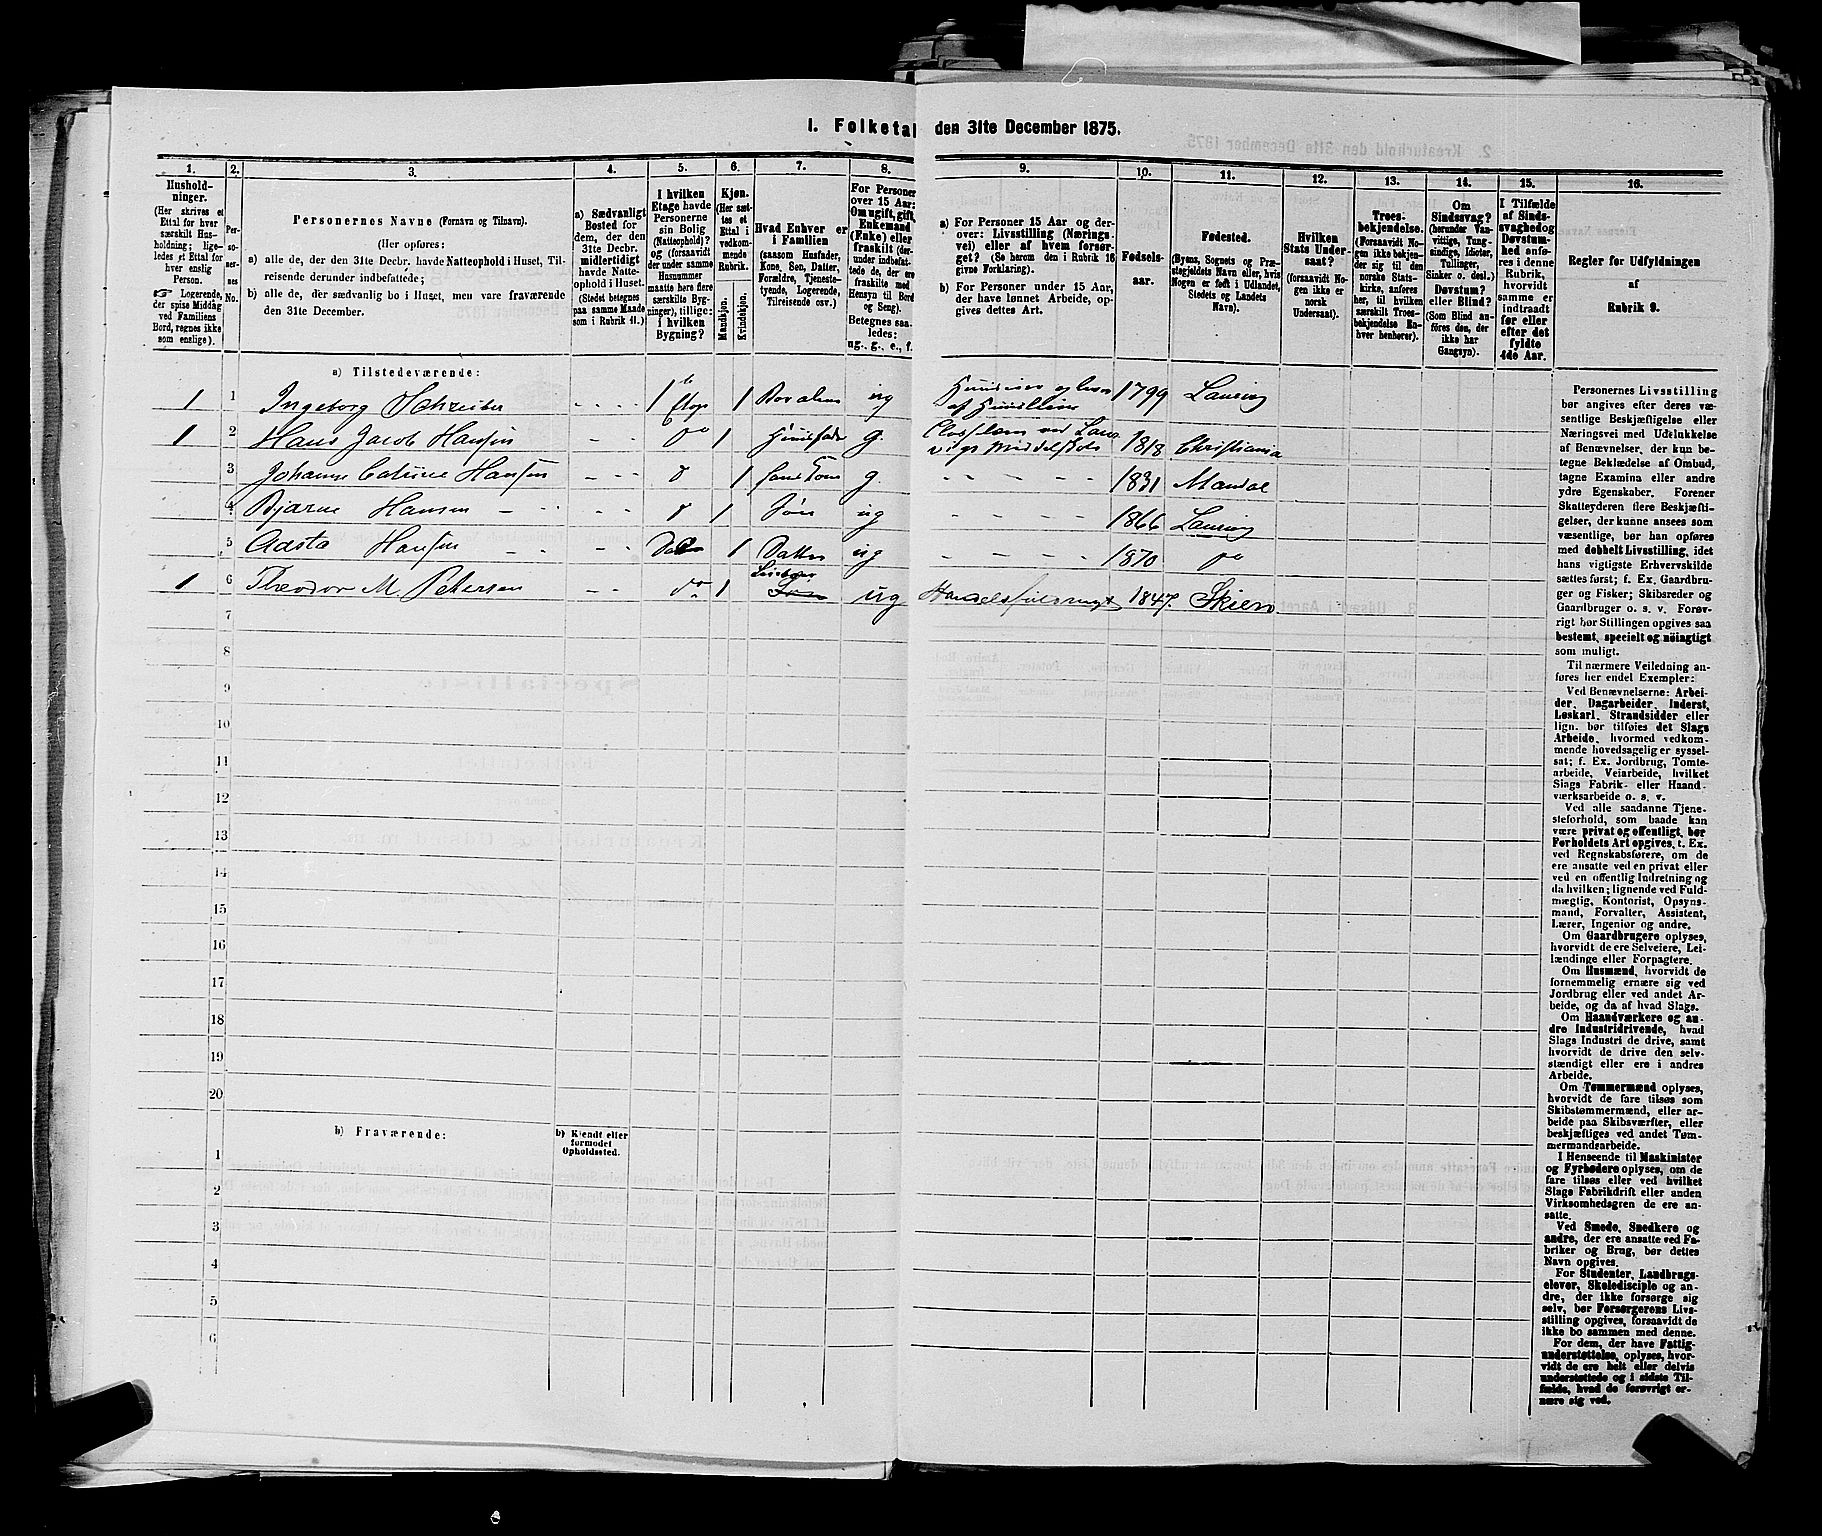 1. Folketal den 31te December 1875.
1. 2. 3. 4. 5. 6. 7. 8. 9. 10. 11. 12. 13. 14. 15. 16.
Hushold-
ninger.
(Her skrives et
Ettal for hver
særskilt Hus-
holdning; lige-
ledes et Ettal for
hver enslig
Person.
Logerende,
der spise Middag
ved Familiens
Bord, regnes ikke
som enslige).
Per-
so-
ner-
nes
No.
Personernes Navne (Fornavn og Tilnavn).
(Her opføres:
a) alle de, der den 31te Decbr. havde Natteophold i Huset, Til-
reisende derunder indbefattede;
b) alle de, der sædvanlig bo i Huset, men vare fraværende
den 31te December.
a) Sædvanligt
Bosted for
dem, der den
31te Decbr.
midlertidigt
havde Natte-
ophold i Huset.
(Stedet betegnes
paa samme Maade
som i Rubrik 11.)
I hvilken
Etage havde
Personerne
sin Bolig
(Natteophold)?
og (forsaavidt
der under samme
Husnummer
maatte høre flere
særskilte Byg-
ninger), tillige:
i hvilken
Bygning?
Kjøn.
(Her sæt-
tes et
Ettal i
vedkom-
mende
Rubrik.
Mandkjøn.
Kvindekjøn.
Hvad Enhver er
i Familien
(saasom Husfader,
Kone, Søn, Datter,
Forældre, Tjeneste-
tyende, Logerende,
Tilreisende osv.)
For Personer
over 15 Aar:
Om ugift, gift,
Enkemand
(Enke) eller
fraskilt (der-
under indbefat-
tede de, der ere
fraskilte med
Hensyn til Bord
og Seng).
Betegnes saa-
ledes:
ug., g., e., f.
a) For Personer 15 Aar og der-
over: Livsstilling (Nærings-
vei) eller af hvem forsør-
get? (Se herom den i Rubrik 16
givne Forklaring).
b) For Personer under 15 Aar,
der have lønnet Arbeide, op-
gives dettes Art.
Fødsels-
aar.
Fødested.
(Byens, Sognets og Præ-
stegjeldets Navn eller, hvis
Nogen er født i Udlandet,
Stedets og Landets
Navn).
Hvilken
Stats Under-
saat?
(forsaavidt No-
gen ikke er
norsk
Undersaat).
Troes-
bekjendelse.
(Forsaavidt No-
gen ikke bekjen-
der sig til den
norske Stats-
kirke, anføres
her, til hvilken
særskilt Troes-
bekjendelse En-
hver henhører).
Om
Sindssvag?
(herunder Van-
vittige, Tung-
sindige, Idioter,
Tullinger,
Sinker o. desl.)
Døvstum?
eller Blind?
(Som Blind an-
føres den, der
ikke har
Gangsyn).
I Tilfælde
af Sinds-
svaghed og
Døvstum-
hed anfø-
res i denne
Rubrik,
hvorvidt
samme er
indtraadt
før eller
efter det
fyldte
4de Aar.
Regler for Udfyldningen
af
Rubrik 9.
a) Tilstedeværende:
1 1 Ingeborg Schreiber 1 Etage 1 ug 1799 Laurvig
1 2 Hans Jacob Hansen do 1 g. 1818 Christiania
3 Johanne Hansen d 1 g. 1831 Mandal
4 Bjarne Hansen d 1 Søn ug 1866 Laurvig
5 Hansen 1 Datter ug 1870 do
1 6 Theodor M. Petersen do 1 ug 1847. Skien
7
8
9
10
11
12
13
14
15
16
17
18
19
20
b) Fraværende:
b) Kjendt eller
formodet
Opholdssted.
1
2
3
4
5
6
Personernes Livsstilling
bør angives efter deres væ-
sentlige Beskjæftigelse eller
Næringsvei med Udelukkelse
af Benævnelser, der kun be-
tegne Beklædelse af Ombud,
tagne Examina eller andre
ydre Egenskaber. Forener
Skatteyderen flere Beskjæfti-
gelser, der kunne ansees som
væsentlige, bør han opføres
med dobbelt Livsstilling, idet
hans vigtigste Erhvervskilde
sættes først; f. Ex. Gaardbru-
ger og Fisker; Skibsreder og
Gaardbruger o. s. v. Forøv-
rigt bør Stillingen opgives saa
bestemt, specielt og nöiagtigt
som muligt.
Til nærmere Veiledning an-
føres her endel Exempler:
Ved Benævnelserne: Arbei-
der, Dagarbeider, Inderst,
Løskarl, Strandsidder eller
lign. bør tilføies det Slags
Arbeide, hvormed vedkom-
mende hovedsagelig er syssel-
sat; f. Ex. Jordbrug, Tomte-
arbeide, Veiarbeide, hvilket
Slags Fabrik- eller Haand-
værksarbeide o. s. v.
Ved alle saadanne Tjene-
steforhold, som baade kan
være privat og offentligt, bør
Forholdets Art opgives, t. Ex.
ved Regnskabsførere, om de
ere ansatte ved en privat eller
ved en offentlig Indretning og
da hvilken; lignende ved Fuld-
mægtig, Kontorist, Opsyns-
mand, Forvalter, Assistent,
Lærer, Ingeniør og andre.
Om Gaardbrugere oplyses,
hvorvidt de ere Selveiere, Lei-
lændinge eller Forpagtere.
Om Husmænd, hvorvidt de
fornemmelig ernære sig ved
Jordbrug eller ved andet Ar-
beide, og da af hvad Slags.
Om Haandværkere og an-
dre Industridrivende, hvad
Slags Industri de drive, samt
hvorvidt de drive den selv-
stændigt eller ere i andres
Arbeide.
Om Tømmermænd oplyses,
hvorvidt de fare tilsøs som
Skibstømmermænd, eller ar-
beide paa Skibsværfter, eller
beskjæftiges ved andet Tøm-
mermandsarbeide.
I Henseende til Maskinister
og Fyrbødere oplyses, om de
fare tilsøs eller ved hvilket
Slags Fabrikdrift eller anden
Virksomhedsgren de ere an-
satte.
Ved Smede, Snedkere og
andre, der ere ansatte ved Fa-
briker og Brug, bør dettes
Navn opgives.
For Studenter, Landbrugs-
elever, Skoledisciple og an-
dre, der ikke forsørge sig
selv, bør Forsørgerens Livs-
stilling opgives, forsaavidt de
ikke bo sammen med denne.
For dem, der have Fattig-
understøttelse, oplyses, hvor-
vidt de ere helt eller delvis
understøttede og i sidste Til-
fælde, hvad de forøvrigt er-
nære sig ved.